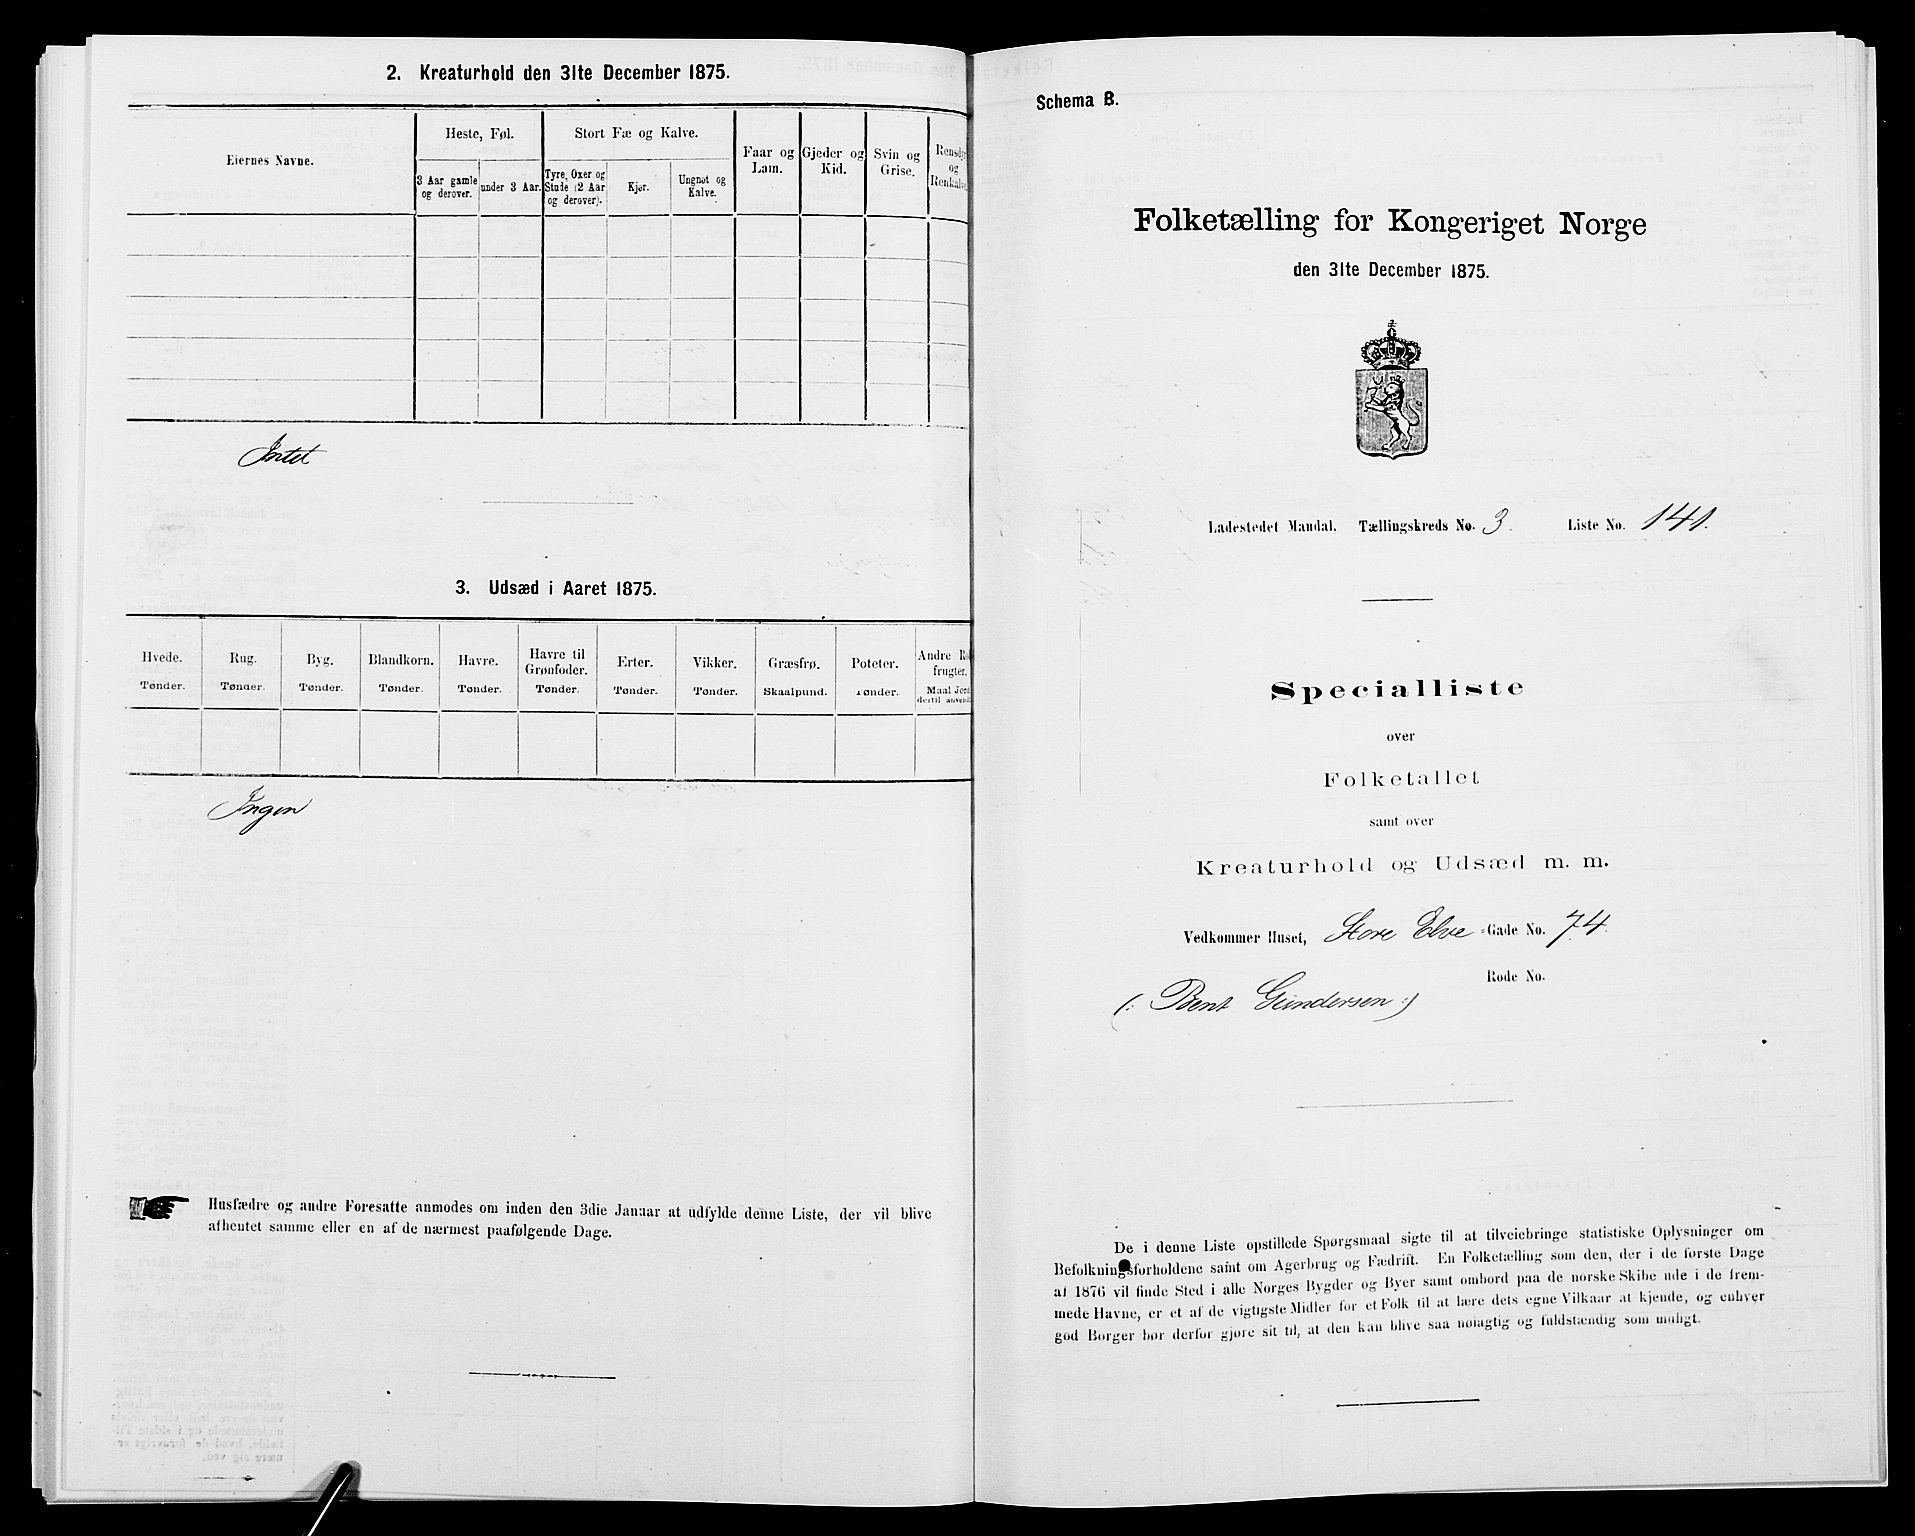 2. Kreaturhold den 31te December 1875.
Eiernes Navne.
Heste, Føl.
Stort Fæ og Kalve.
Faar og Lam.
Gjeder og Kid.
Svin og Grise.
Rensdyr og Renkalve
3 Aar gamle og derover.
under 3 Aar.
Tyre, Oxer og Stude (2 Aar og derover).
Kjør.
Ungnøt og Kalve.
Intet
3. Udsæd i Aaret 1875.
Hvede. Rug. Byg. Blandkorn. Havre. Havre til Grønfoder. Erter. Vikker. Græsfrø. Poteter. Andre Ro frugter.
Tønder. Tønder. Tønder. Tønder. Tønder. Tønder. Tønder. Tønder. Skaalpund. Tønder. Maal Jord dertil anvendt
Ingen
Husfædre og andre Foresatte anmodes om inden den 3die Januar at udfylde denne Liste, der vil blive
afhentet samme eller en af de nærmest paafølgende Dage.
Schema B.
Folketælling for Kongeriget Norge
den 31te December 1875.
Ladestedet Mandal. Tællingskreds No. 3. Liste No. 141.
Specialliste
over
Folketallet
samt over
Kreaturhold og Udsæd m. m.
Vedkommer Huset, Store Elve-Gade No. 74.
Rode No.
(: Bent Gundersen :)
De i denne Liste opstillede Spørgsmaal sigte til at tilveiebringe statistiske Oplysninger om
Befolkningsforholdene samt om Agerbrug og Fædrift. En Folketælling som den, der i de første Dage
af 1876 vil finde Sted i alle Norges Bygder og Byer samt ombord paa de norske Skibe ude i de frem-
mede Havne, er et af de vigtigste Midler for et Folk til at lære dets egne Vilkaar at kjende, og enhver
god Borger bør derfor gjøre sit til, at den kan blive saa nøiagtig og fuldstændig som muligt.